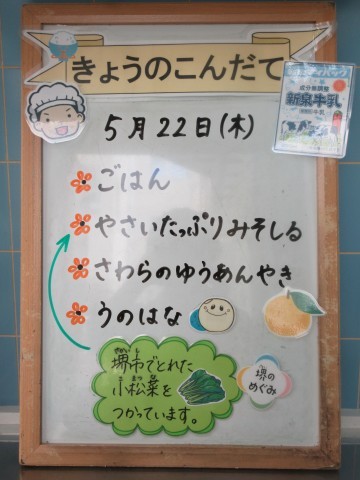 きょうのこんだて
5月22日(木)
ごはん
やさいたっぷりみそしる
さわらのゆうあんやき
うのはな
さかいし
堺市でとれた
こまつな
小松菜を
つかっています。
堺の
めぐみ
成分無調整
新泉牛乳